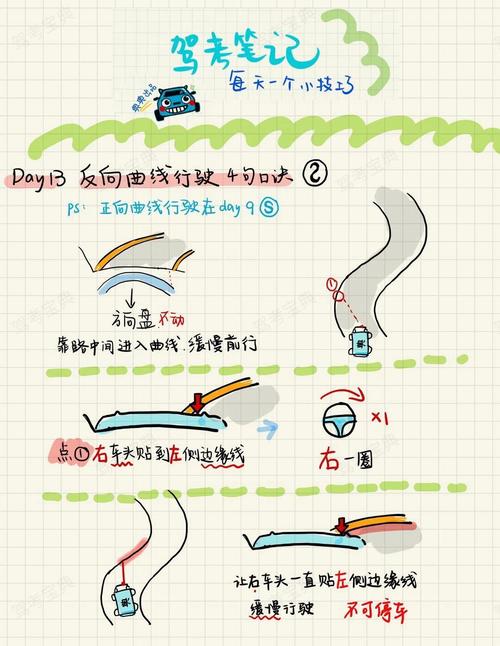 驾考笔记
每天一个小技巧
Day13 反向曲线行驶 4句口诀 ②
PS: 正向曲线行驶在day9 Ⓢ
方向盘不动
靠路中间进入曲线,缓慢前行
①
点①右车头贴到左侧边缘线
×1
右一圈
让右车头一直贴左侧边缘线
缓慢行驶 不可停车
驾考宝典